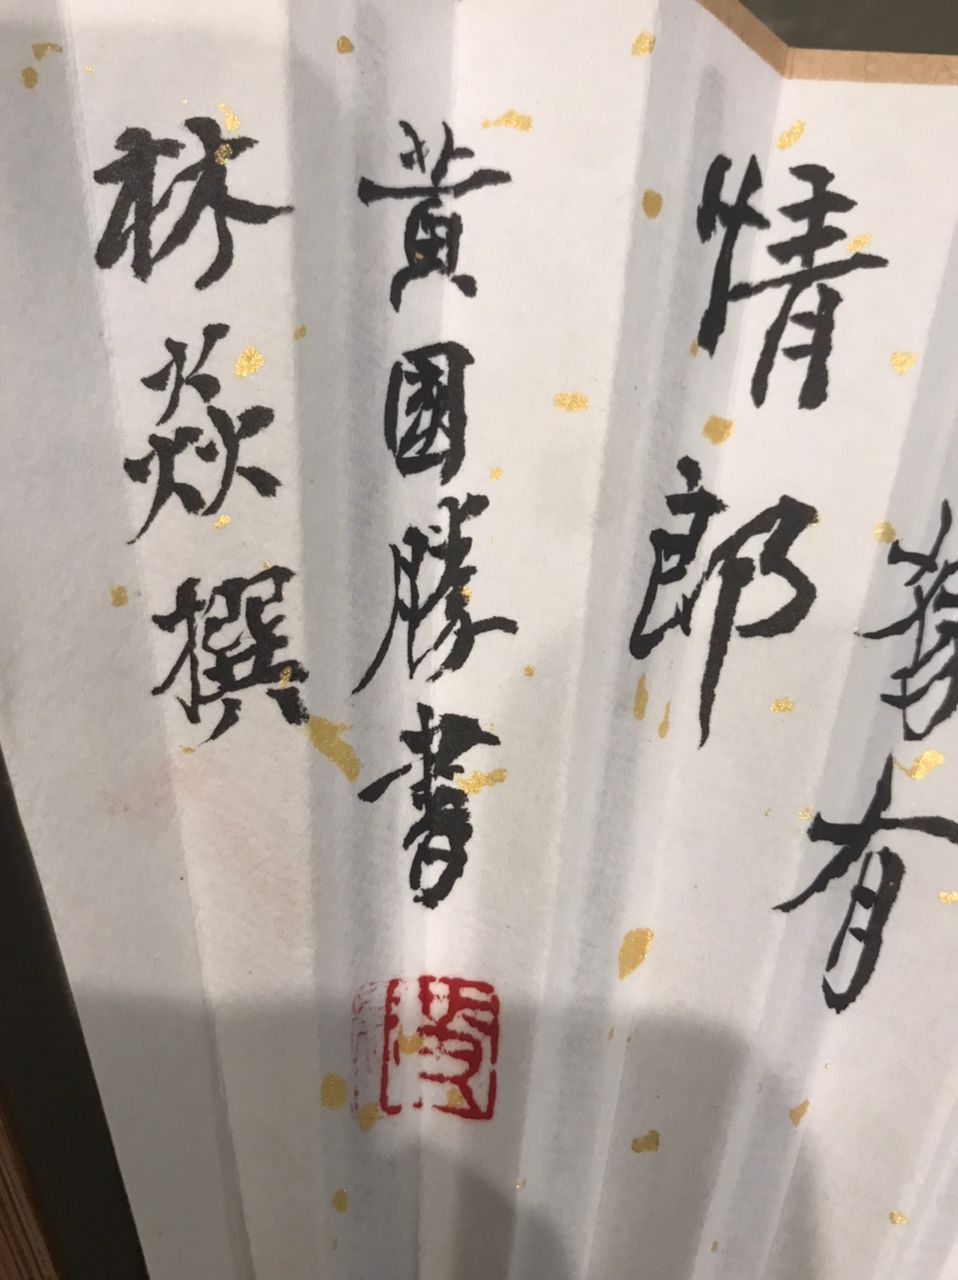 有
情郎
黃國勝書
林焱撰